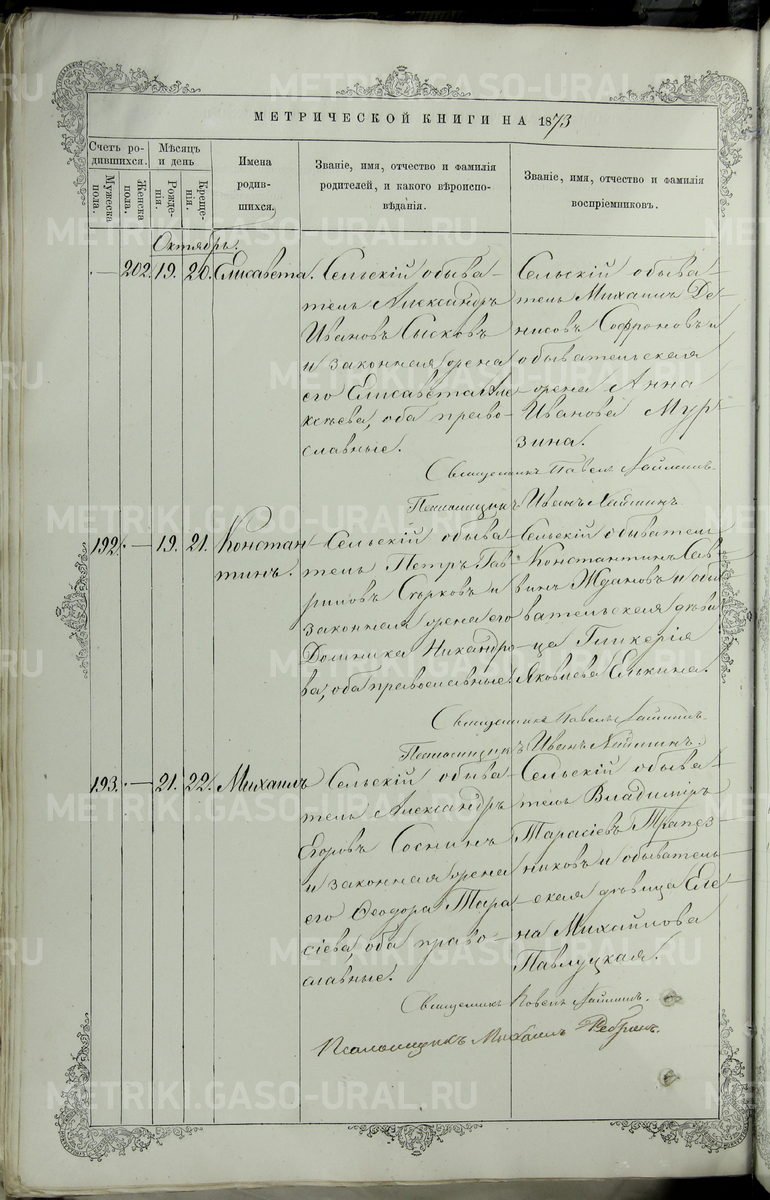 МЕТРИЧЕСКОЙ КНИГИ НА 1873
Счетъ родившихся.
Мужеска пола.
Женска пола.
Мѣсяцъ и день
Рожденія.
Крещенія.
Имена родившихся.
Званіе, имя, отчество и фамилія родителей, и какого вѣроисповѣданія.
Званіе, имя, отчество и фамилія воспріемниковъ.
Октябрь.
202. 19. 20. Елисавета.
Сельскій обыва-
тель Александръ
Ивановъ Сысковъ
и законная жена
его Елисавета Але
ксѣева, оба право-
славные.
Сельскій обыва-
тель Михаилъ Де-
нисовъ Софроновъ и
обывательская
жена Анна
Иванова Мур-
зина.
Священникъ Павелъ
Псаломщикъ Иванъ
192. — 19. 21. Констан-
тинъ.
Сельскій обыва-
тель Петръ Гав-
риловъ и
законная жена его
Домника Никандро-
ва, оба православные.
Сельскій обыватель
Константинъ Сав-
винъ Ждановъ и обы
вательская дѣви-
ца Гликерія
Яковлева Елькина.
Священникъ Павелъ
Псаломщикъ Иванъ
193. — 21. 22. Михаилъ
Сельскій обыва-
тель Александръ
Егоровъ Соснинъ
и законная жена
его Ѳеодора Тара-
сіева, оба право-
славные.
Сельскій обыва-
тель Владиміръ
Тарасіевъ Трапез-
никовъ и обыватель-
ская дѣвица Еле-
на Михайлова
Павлуцкая.
Священникъ Павелъ
Псаломщикъ Михаилъ
METRIKI.GASO-URAL.RU